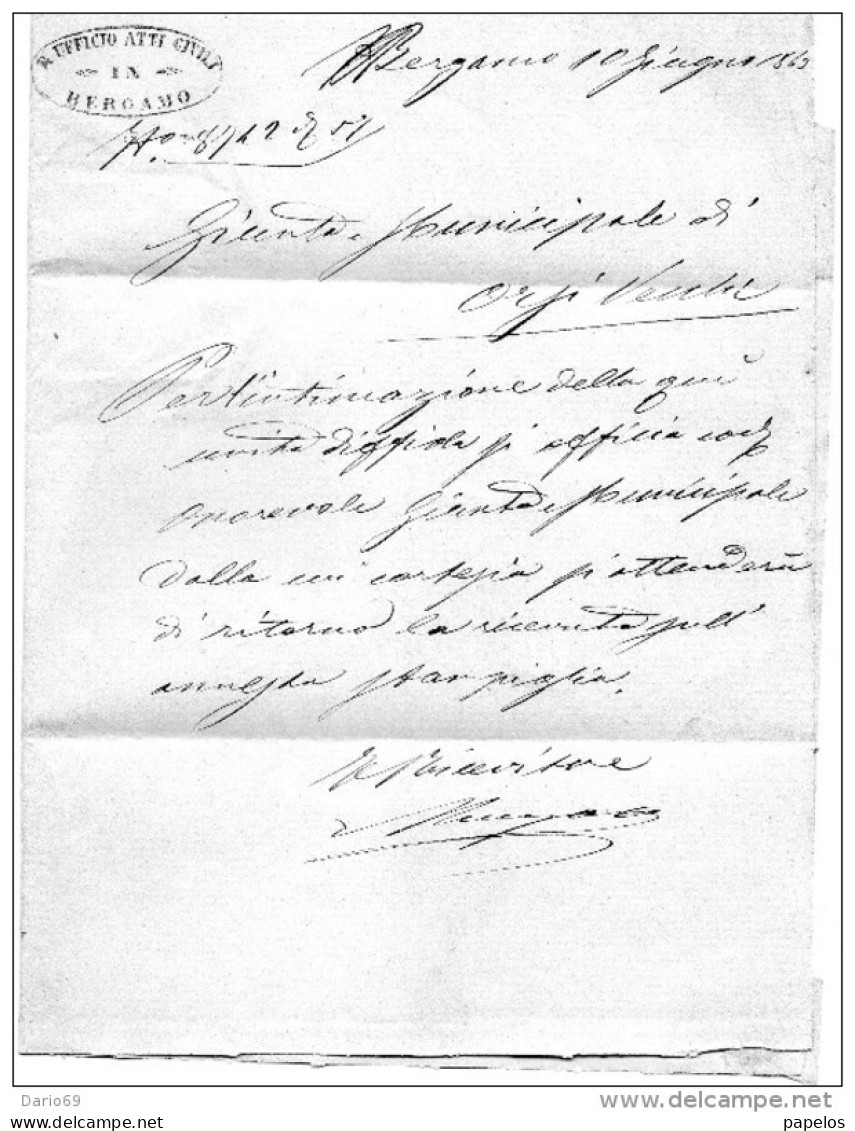 R. UFFICIO ATTI CIVILI
IN
BERGAMO
Bergamo 10 Giugno 1863
Giunta Municipale di
Orzi Vecchi
Per l'intimazione della qui
unita diffida si officia
onorevole Giunta Municipale
dalla cui cortesia si attenderà
di ritorno la ricevuta sull'
annessa stampiglia.
Il Ricevitore
Dario69
www.delcampe.net
papelos